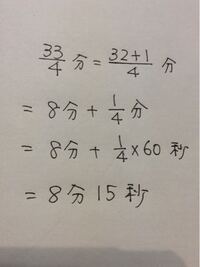 33/4 分 = 32+1/4 分
= 8分 + 1/4 分
= 8分 + 1/4 × 60 秒
= 8分 15 秒